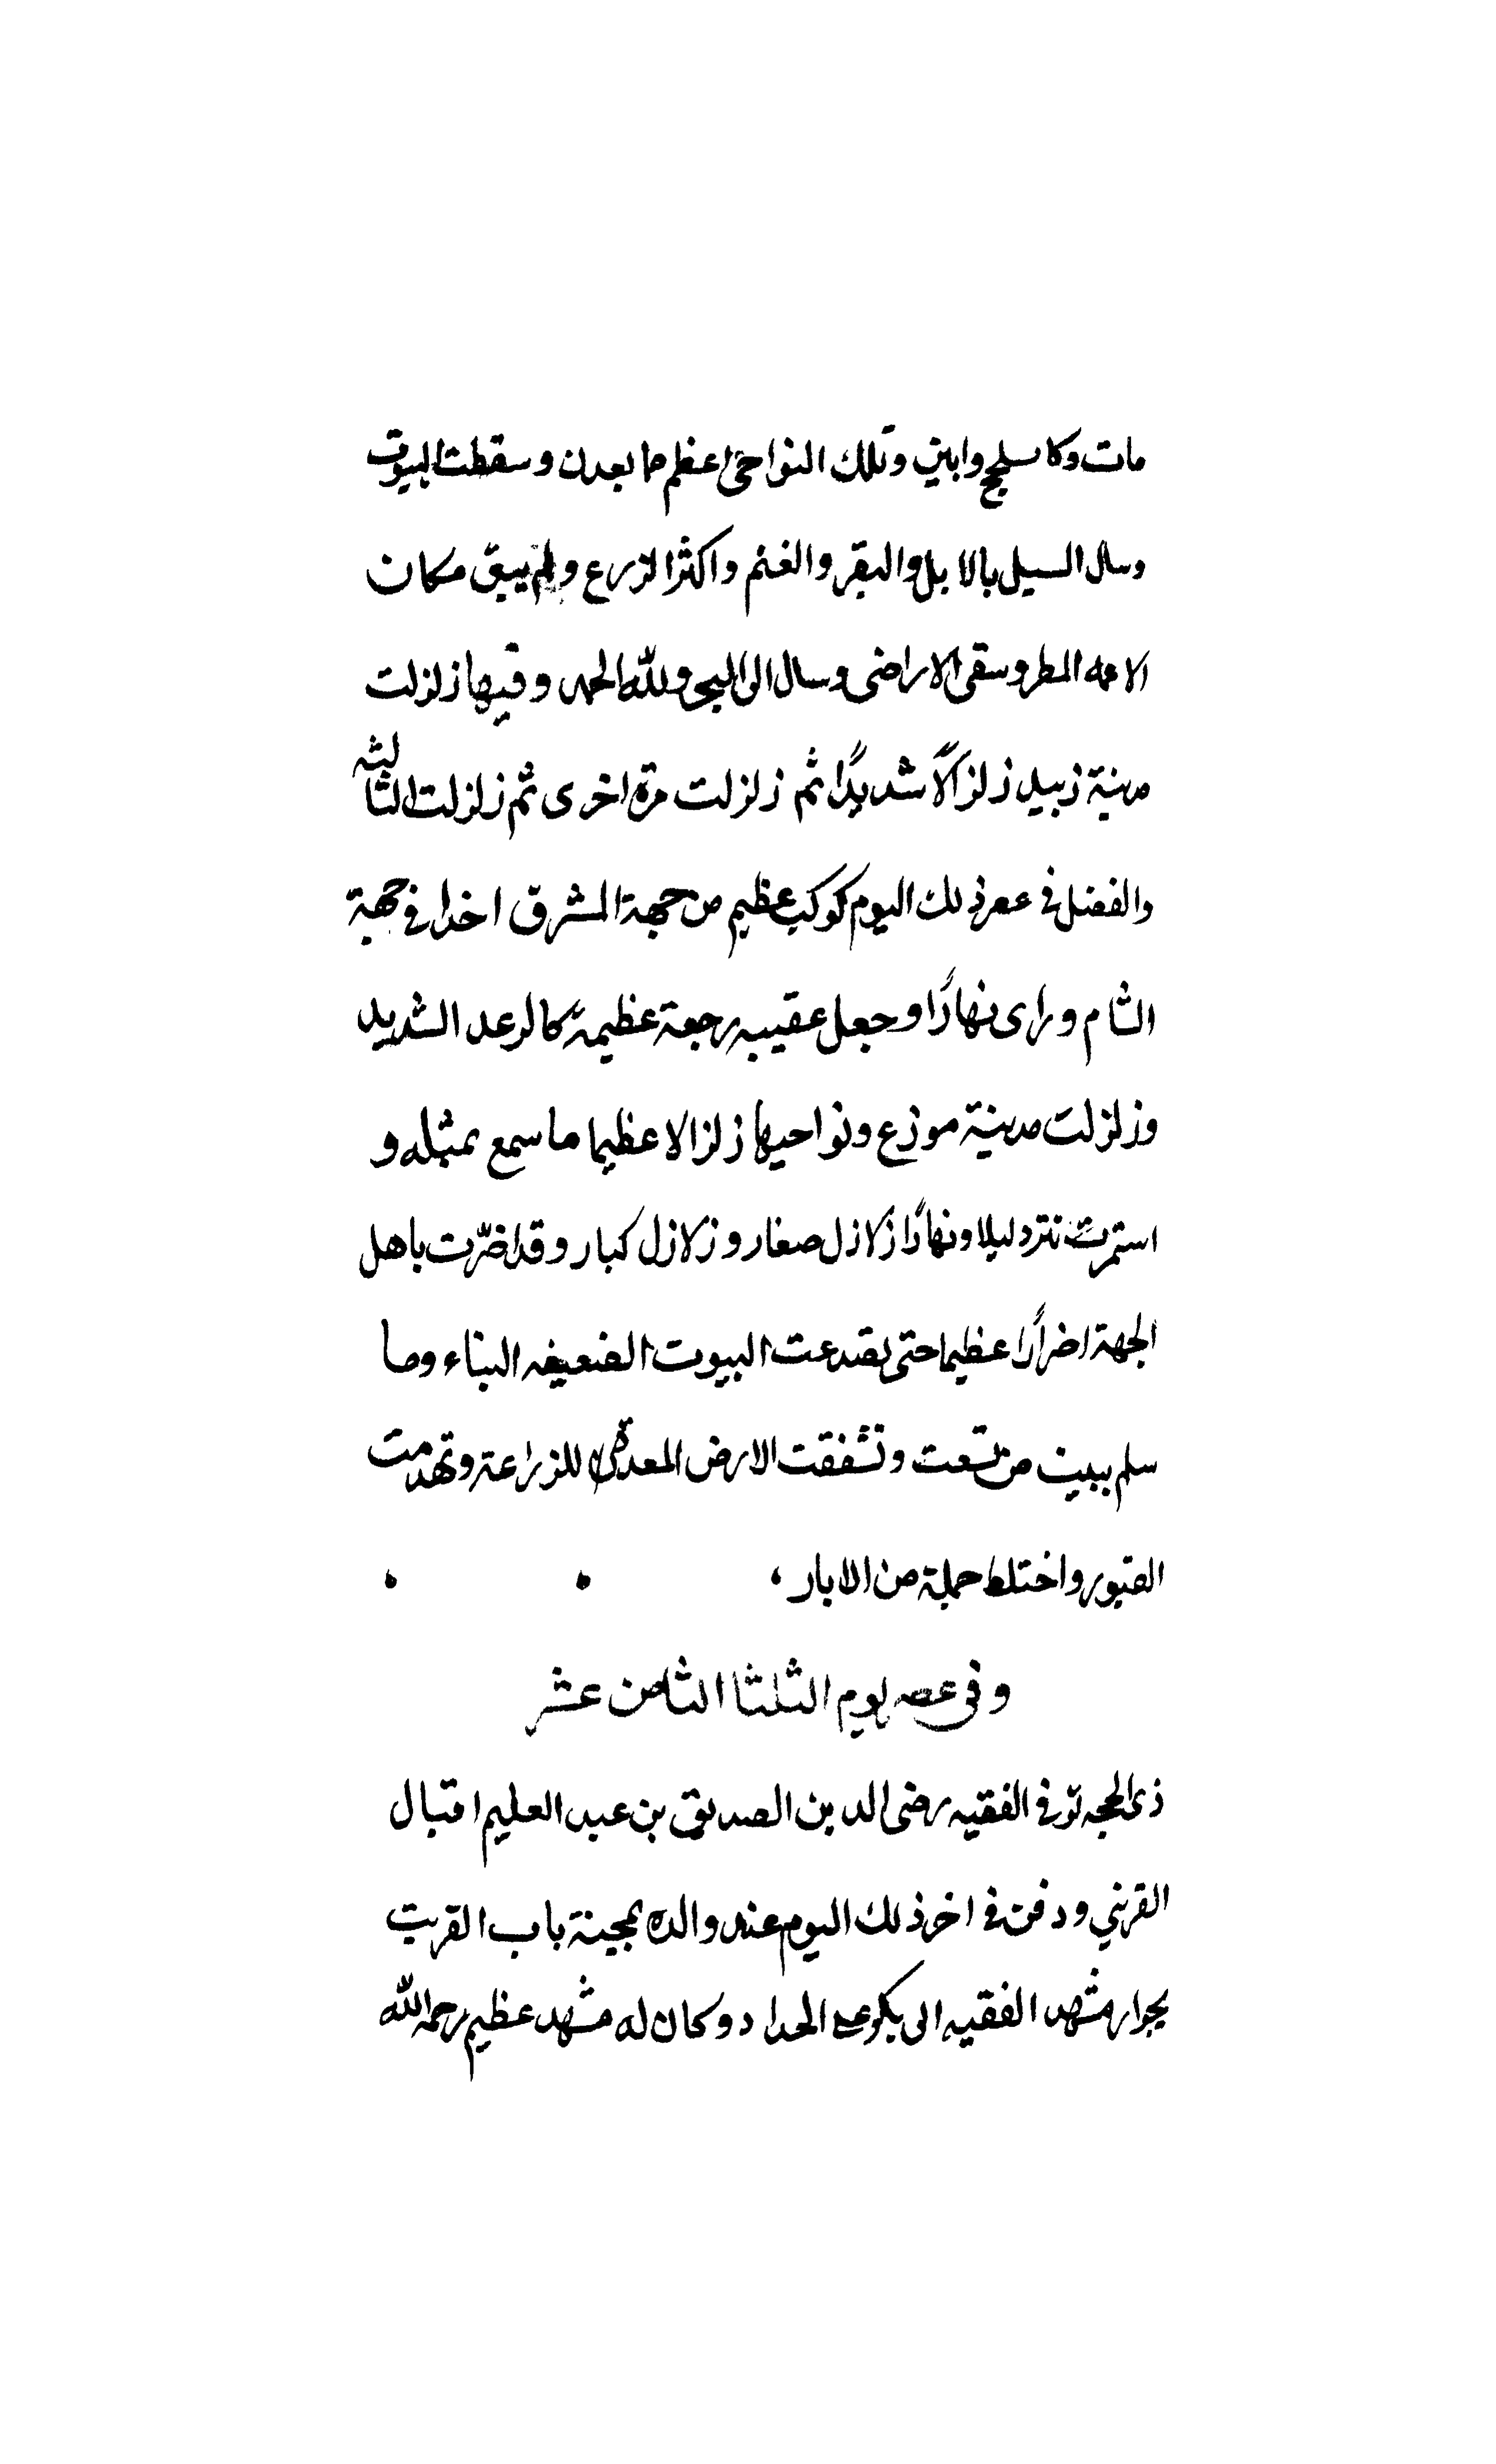 مات وكا بلحج وابين وتلك النواحى اعظم مما بعدن وسقطت البيوت
وسال السيل بالابل والبقر والغنم واكثر الزرع ولم يبق مكان
الا عمه المطر وسقى الاراضى وسال الى البحر ولله الحمد وفيها زلزلت
مدينة زبيد زلزالاً شديدًا ثم زلزلت مرة اخرى ثم زلزلت الثالثه
والفضل فى عصر ذلك اليوم كوكب عظيم من جهة المشرق اخدا فى جهة
الشام وراى نهارًا وحصل عقيبه رجعة عظيمة كالرعد الشديد
وزلزلت مدينة موزع ونواحيها زلزالا عظيما ما سمع بمثله و
استمرت تترد ليلا ونهارًا زلازل صغار وزلازل كبار وقد اضرّت باهل
الجهة اضرارًا عظيما حتى تصدعت البيوت الضعيفه البناء وما
سلم بيت من تشعت وتشققت الارض المعدة للزراعة وتهدمت
القبور واختلط جملة من الابار،
وفى عصر يوم الثلثا الثامن عشر
ذى الحجه توفى الفقيه رضى الدين الصديق بن عبد العليم اقبال
القرتبي ودفن فى اخر ذلك اليوم عند والده بمجنة باب القرتب
بجوار مشهد الفقيه ابى بكر على الحداد وكان له مشهد عظيم رحمه الله